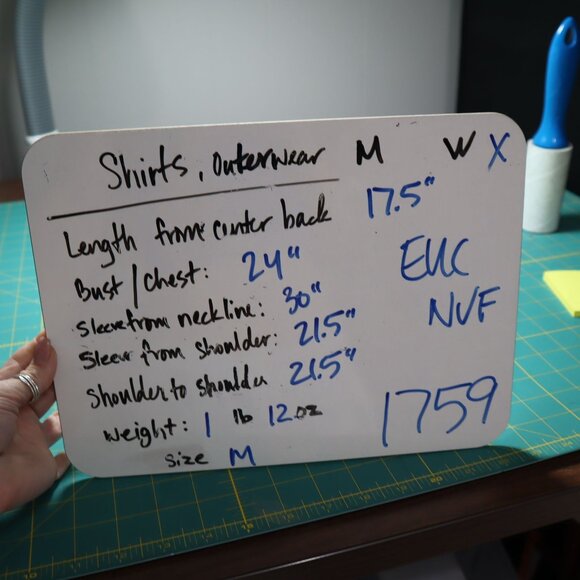 Shirts, Outerwear M W X
Length from center back 17.5"
Bust/Chest: 24"
Sleeve from neckline: 30"
Sleeve from shoulder: 21.5"
Shoulder to shoulder 21.5"
Weight: 1 lb 12 oz
Size M
EUC
NVF
1759